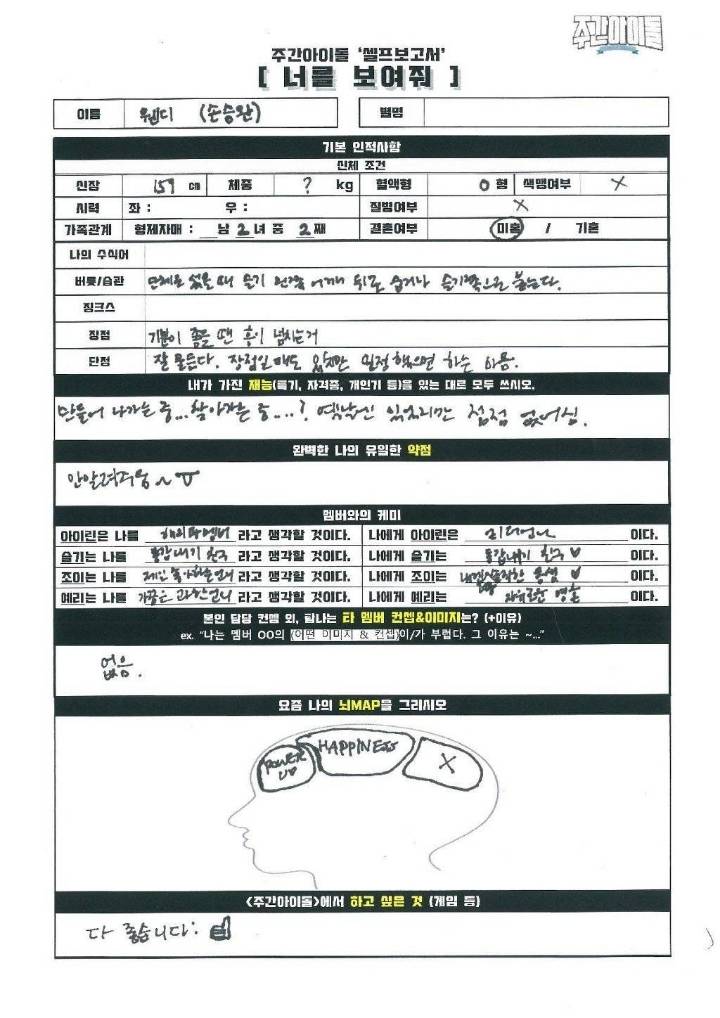 주간아이돌
주간아이돌 '셀프보고서'
[ 너를 보여줘 ]
이름 웬디 (손승완) 별명
기본 인적사항
신체 조건
신장 159 cm 체중 ? kg 혈액형 O 형 색맹여부 X
시력 좌 : 우 : 질병여부 X
가족관계 형제자매 : 남 2 녀 중 2 째 결혼여부 미혼 / 기혼
나의 수식어
버릇/습관 단체로 섰을 때 슬기 왼쪽 어깨 뒤로 숨거나 슬기쪽으로 붙는다.
징크스
장점 기분이 좋을 땐 흥이 넘치는거
단점 잘 모른다. 장점일 때도 있지만 일정 하는 이름.
내가 가진 재능(특기, 자격증, 개인기 등)을 있는 대로 모두 쓰시오.
만들어 나가는 중... 찾아가는 중....? 옛날엔 있었지만 점점 없어짐.
완벽한 나의 유일한 약점
안알려줘용~ㅠ
멤버와의 케미
아이린은 나를 해외파멤버 라고 생각할 것이다. 나에게 아이린은 리더언니 이다.
슬기는 나를 동갑내기 친구 라고 생각할 것이다. 나에게 슬기는 동갑내기 친구♥ 이다.
조이는 나를 제일 좋아하는언니 라고 생각할 것이다. 나에게 조이는 솔직한 동생 ♥ 이다.
예리는 나를 가끔은 과한언니 라고 생각할 것이다. 나에게 예리는 자유로운 영혼 이다.
본인 담당 컨셉 외, 탐나는 타 멤버 컨셉&이미지는? (+이유)
ex. "나는 멤버 OO의 (어떤 이미지 & 컨셉)이/가 부럽다. 그 이유는 ~..."
없음.
요즘 나의 뇌MAP을 그리시오
POWER UP HAPPINESS X
<주간아이돌>에서 하고 싶은 것 (게임 등)
다 좋습니다: